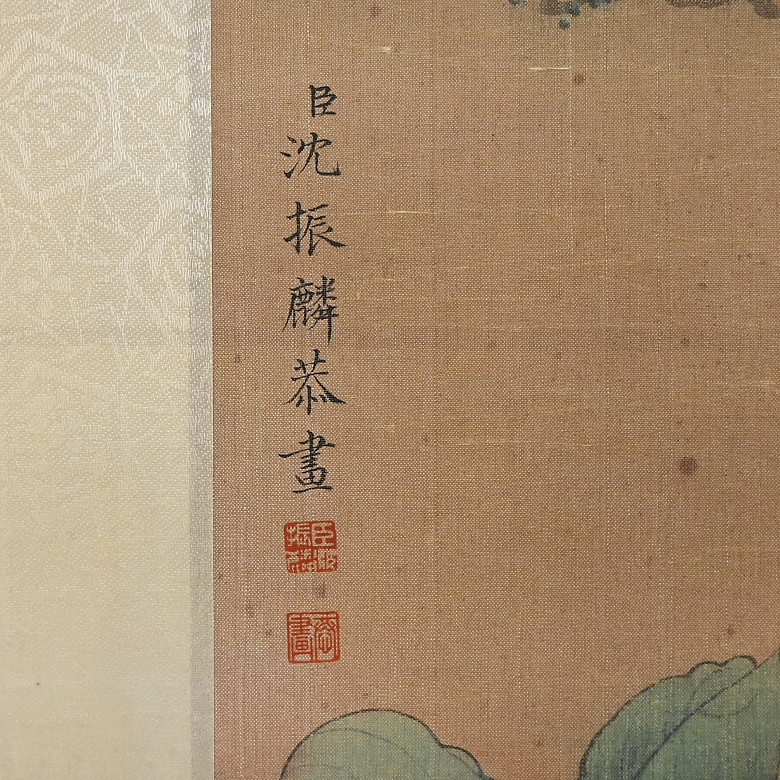 臣沈振麟恭畫
臣沈振麟
恭畫